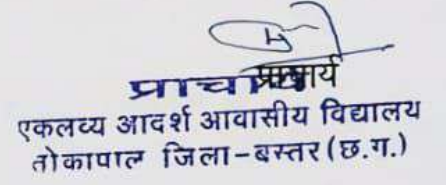 प्राचार्य
प्राचार्य
एकलव्य आदर्श आवासीय विद्यालय
तोकापाल जिला-बस्तर (छ.ग.)